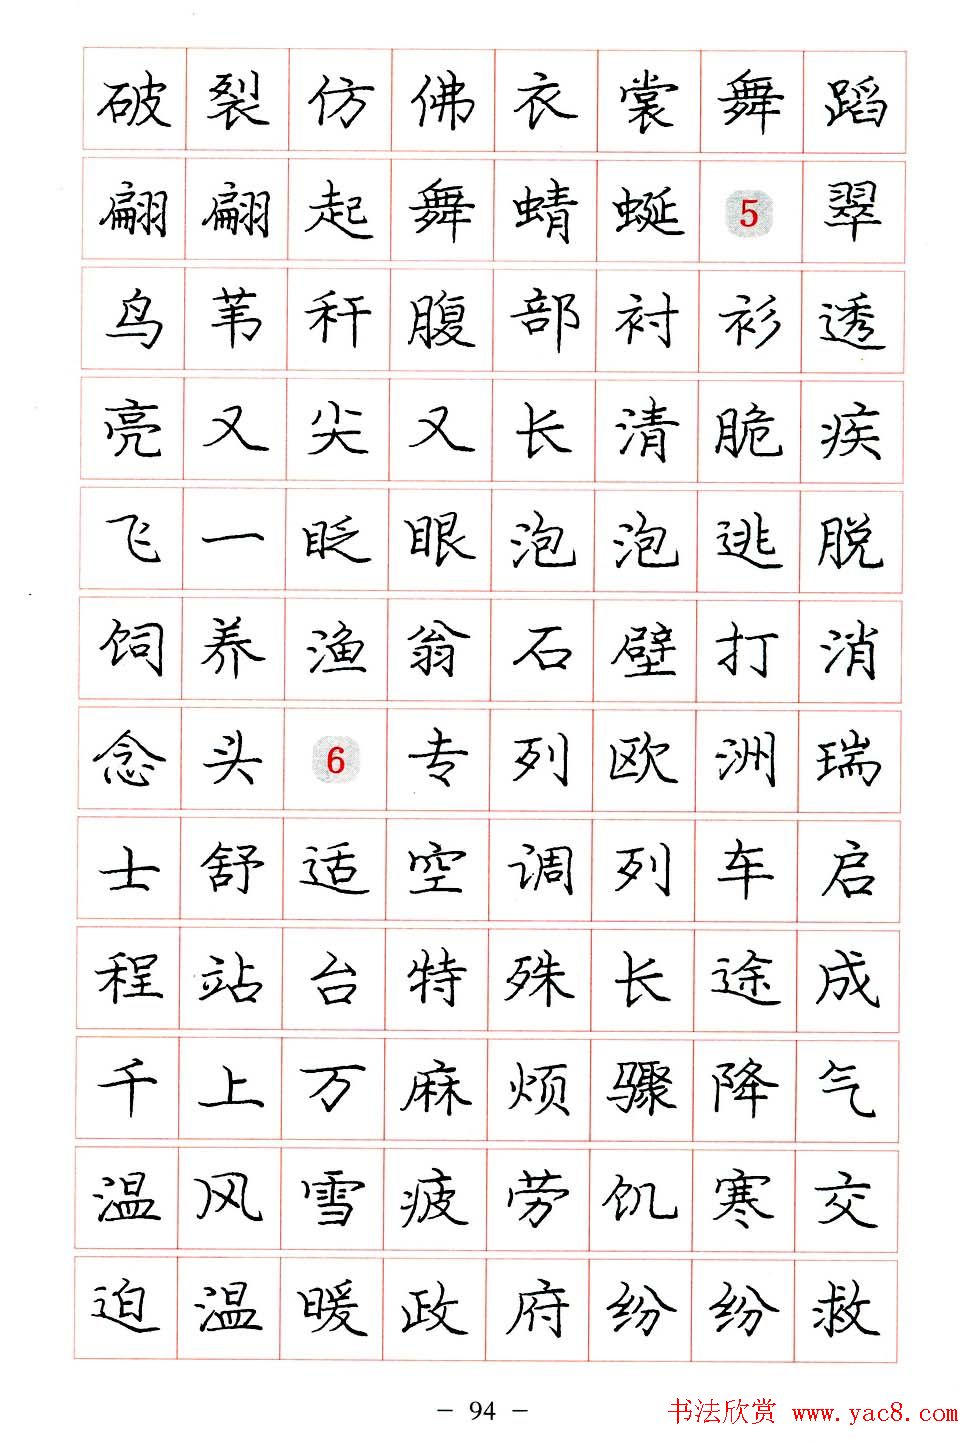 破裂仿佛衣裳舞蹈
翩翩起舞蜻蜓5翠
鸟苇秆腹部衬衫透
亮又尖又长清脆疾
飞一眨眼泡泡逃脱
饲养渔翁石壁打消
念头6专列欧洲瑞
士舒适空调列车启
程站台特殊长途成
千上万麻烦骤降气
温风雪疲劳饥寒交
迫温暖政府纷纷救
－ 94 －
书法欣赏 www.yac8.com